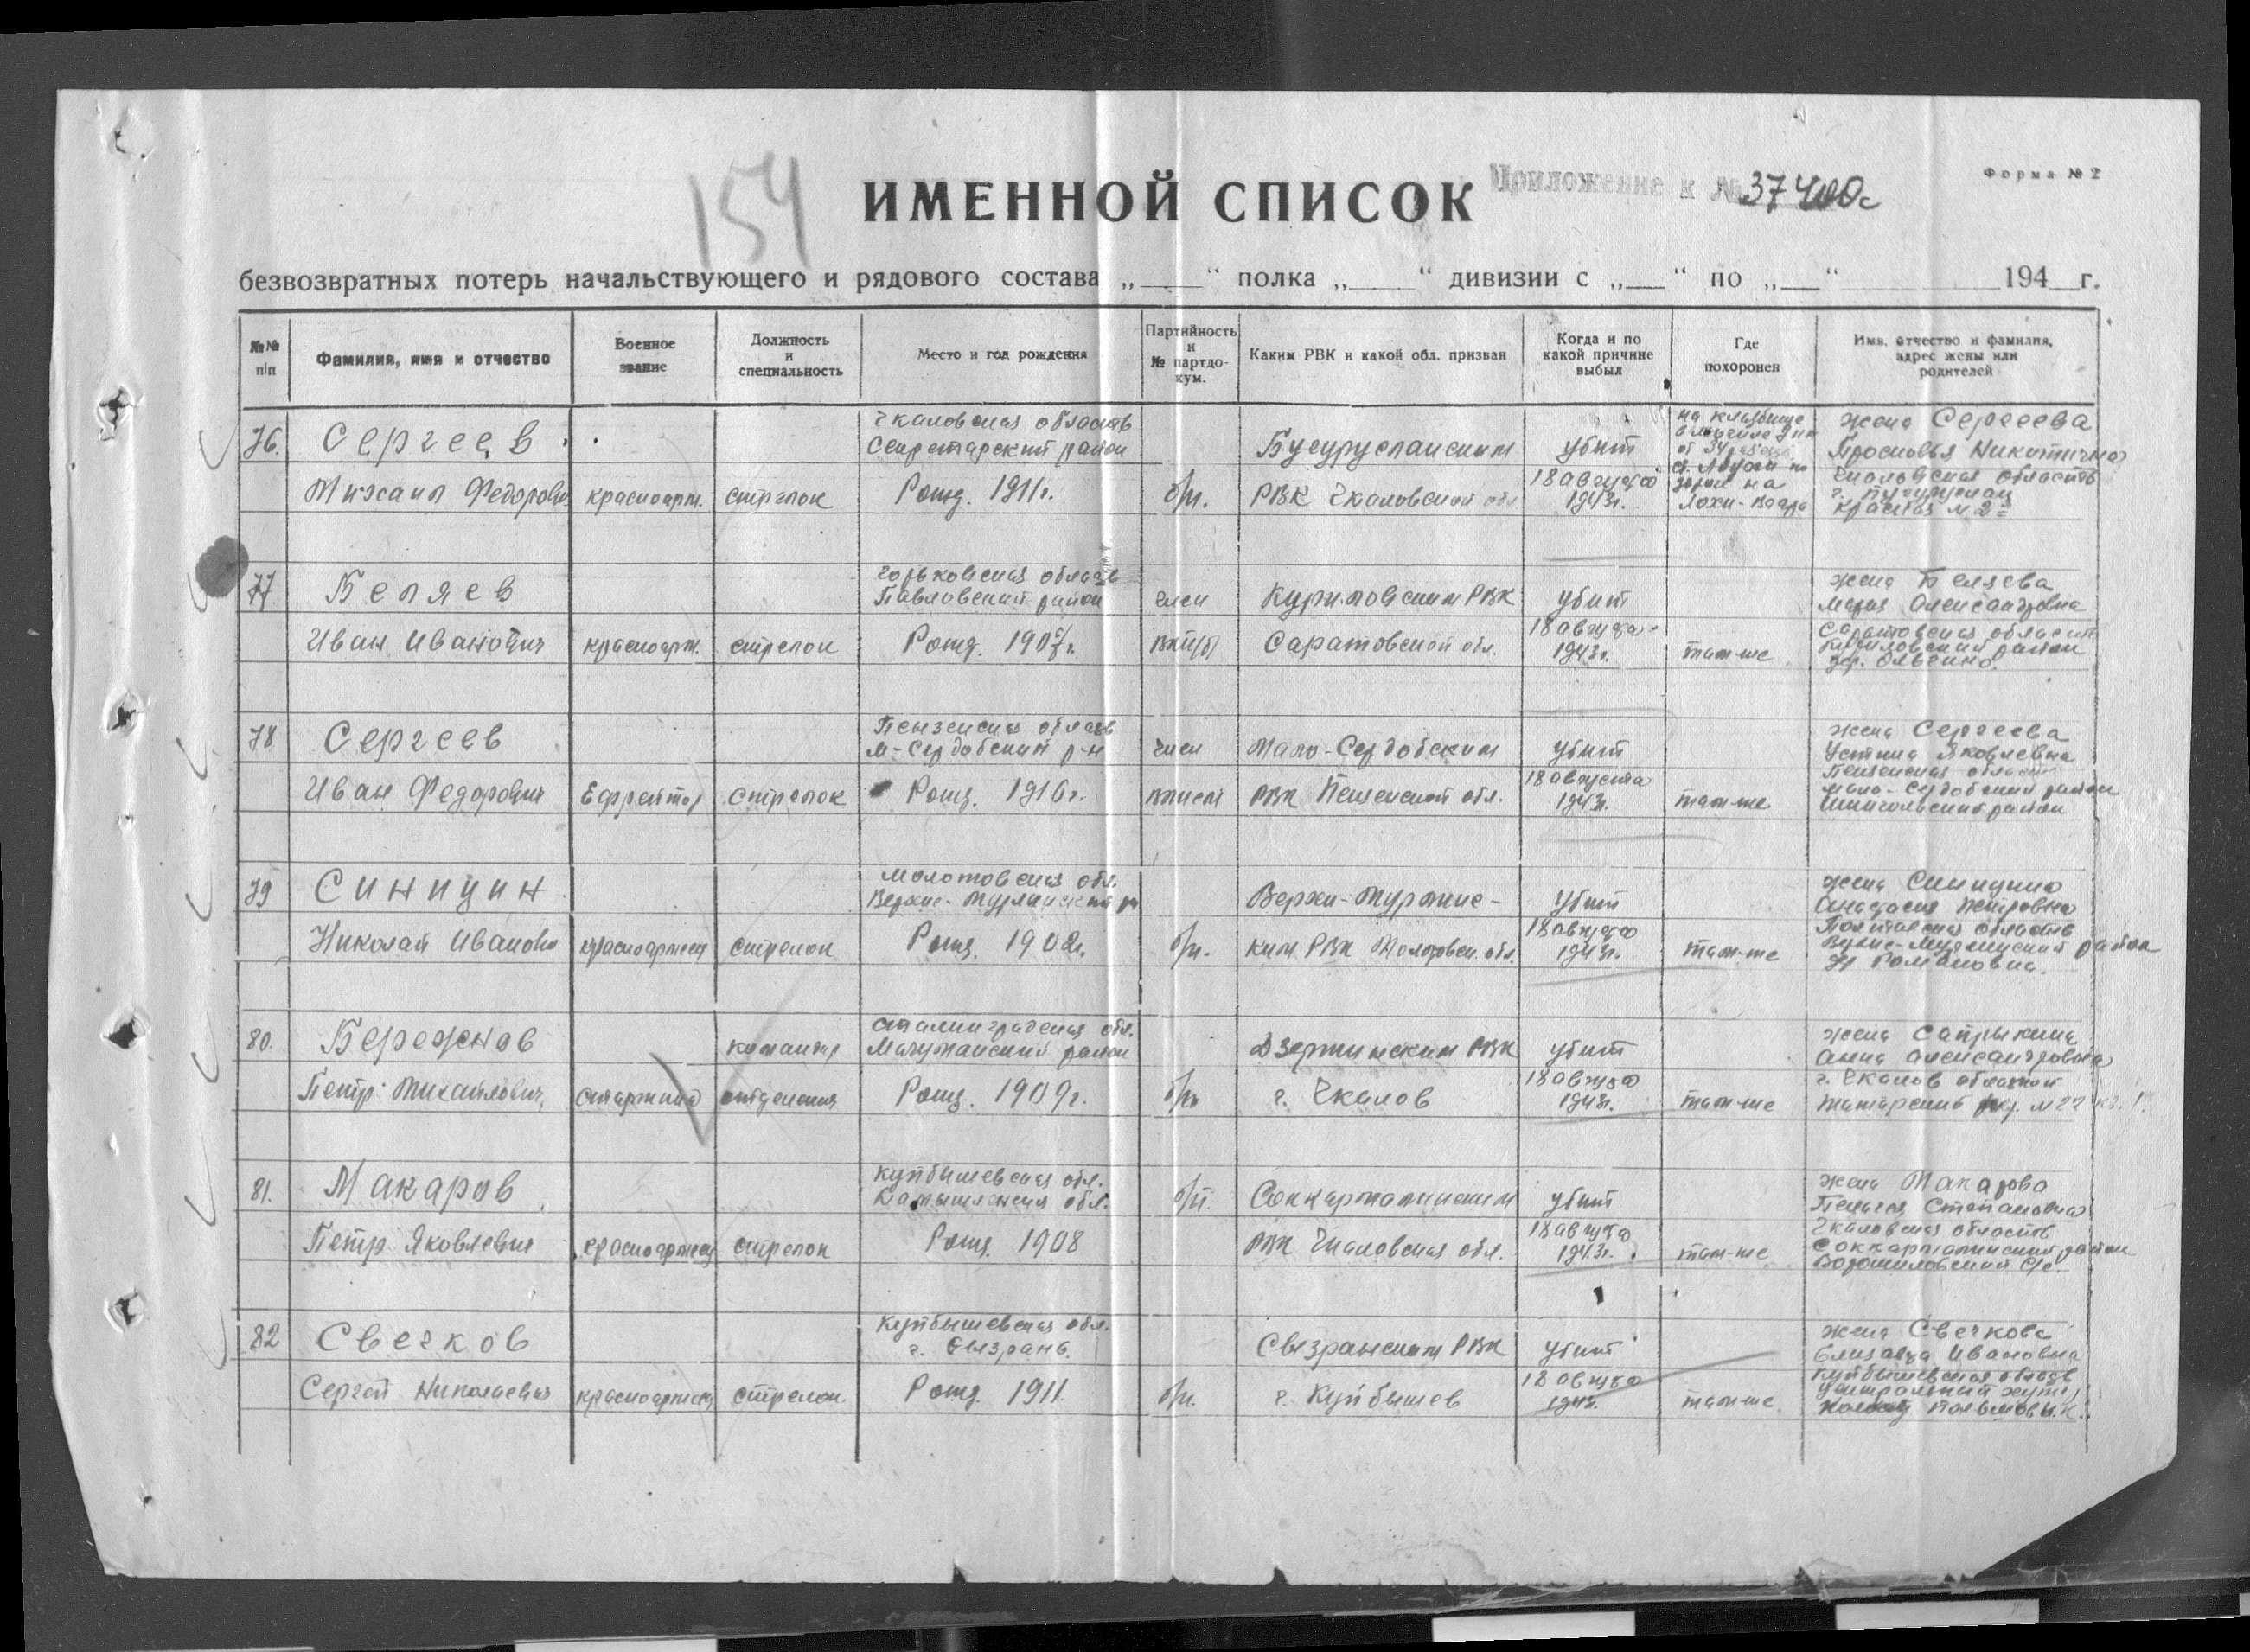 154
ИМЕННОЙ СПИСОК
Приложение к № 37400с
Форма № 2
безвозвратных потерь начальствующего и рядового состава „ “ полка „ “ дивизии с „ “ по „ “ 194 г.
№№ п/п
Фамилия, имя и отчество
Военное звание
Должность и специальность
Место и год рождения
Партийность и № партдокум.
Каким РВК и какой обл. призван
Когда и по какой причине выбыл
Где похоронен
Имя, отчество и фамилия, адрес жены или родителей
76.
Сергеев
Михаил Федорович
красноарм.
стрелок
Чкаловская область
Секретарский район
Рожд. 1911г.
б/п.
Бугурусланским
РВК Чкаловской обл
убит
18 августа
1943г.
на кладбище
Лохи-Ваара
жена Сергеева
Просковья Никитична
Чкаловская область
Красная
77
Беляев
Иван Иванович
красноарм.
стрелок
Горьковская область
Павловский район
Рожд. 1907г.
член
ВКП(б)
Куриловским РВК
Саратовской обл.
убит
18 августа
1943г.
там-же
жена Беляева
Мария Александровна
Саратовская область
Куриловский район
78
Сергеев
Иван Федорович
Ефрейтор
стрелок
Пензенская область
М-Сердобский р-н
Рожд. 1916г.
член
Мало-Сердобским
РВК Пензенской обл.
убит
18 августа
1943г.
там-же
жена Сергеева
Устина Яковлевна
Пензенская область
Мало-Сердобский район
79
Синицин
Николай Иванови
красноармеец
стрелок
Молотовская обл.
Рожд. 1902г.
б/п.
ким РВК Молотовск. обл.
убит
18 августа
1943г.
там-же
жена Синицина
Анастасия Петровна
80.
Бережнов
Петр Михайлович
старшина
командир
отделения
Сталинградская обл.
Рожд. 1909г.
б/п
Дзержинским РВК
г. Чкалов
убит
18 августа
1943г.
там-же
жена Сапрыкина
Анна Александровна
г. Чкалов
81.
Макаров
Петр Яковлевич
красноармеец
стрелок
Куйбышевская обл.
Рожд. 1908
б/п.
Соккармалинским
РВК Чкаловская обл.
убит
18 августа
1943г.
там-же
жена Макарова
Пелагея Степановна
Чкаловская область
Соккармалинский район
Ворошиловский с/с.
82
Свечков
Сергей Николаевич
красноармеец
стрелок
Куйбышевская обл.
г. Сызрань.
Рожд. 1911
б/п.
Сызранским РВК
г. Куйбышев
убит
18 августа
там-же
жена Свечкова
Елизавета Ивановна
Куйбышевская область